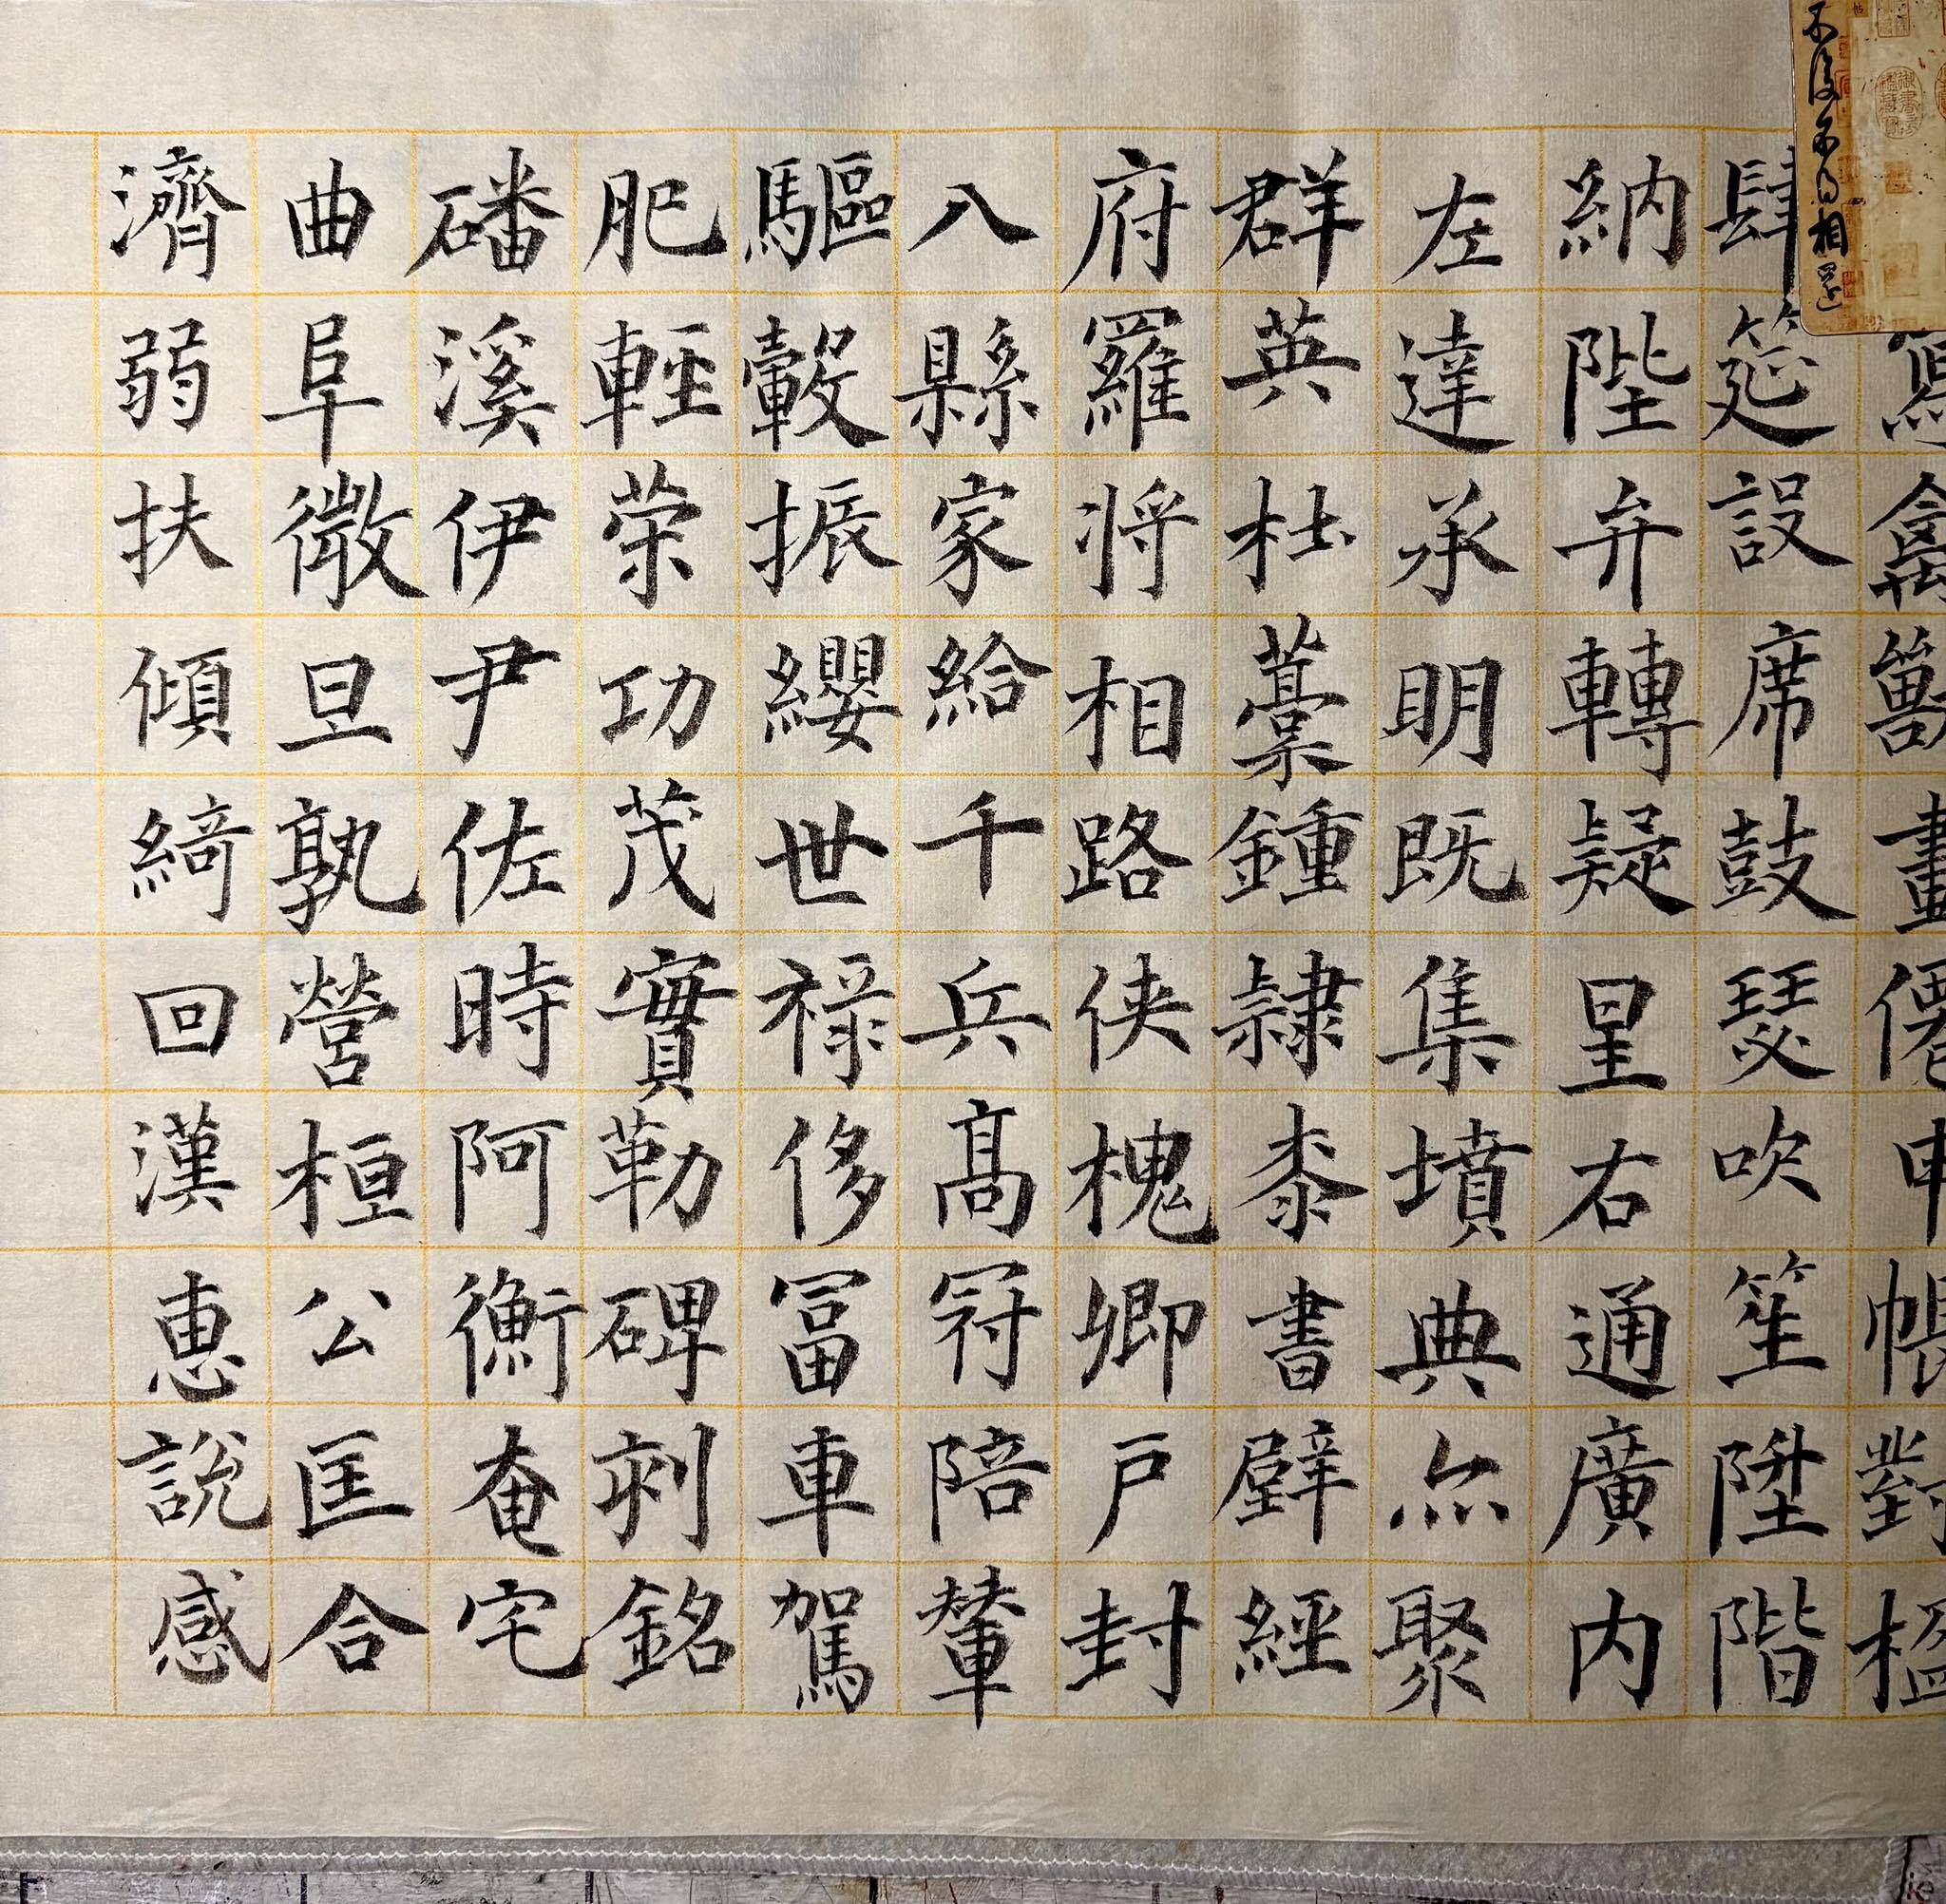 寫禽獸畫僊甲帳對楹
肆筵設席鼓瑟吹笙陞階
納陛弁轉疑星右通廣内
左達承明既集墳典亦聚
群英杜藁鍾隷桼書壁經
府羅将相路俠槐卿戸封
八縣家給千兵髙冠陪輦
驅轂振纓世禄侈冨車駕
肥輕荣功茂實勒碑刻銘
磻溪伊尹佐時阿衡奄宅
曲阜微旦孰營桓公匡合
濟弱扶傾綺回漢惠説感